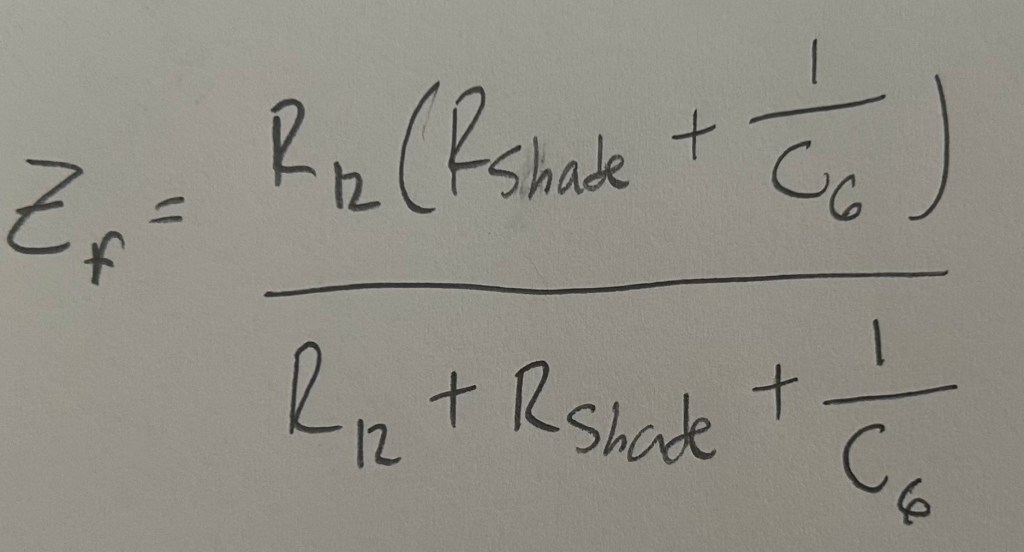 Z_f = \frac{R_{12} (R_{Shade} + \frac{1}{C_6})}{R_{12} + R_{Shade} + \frac{1}{C_6}}